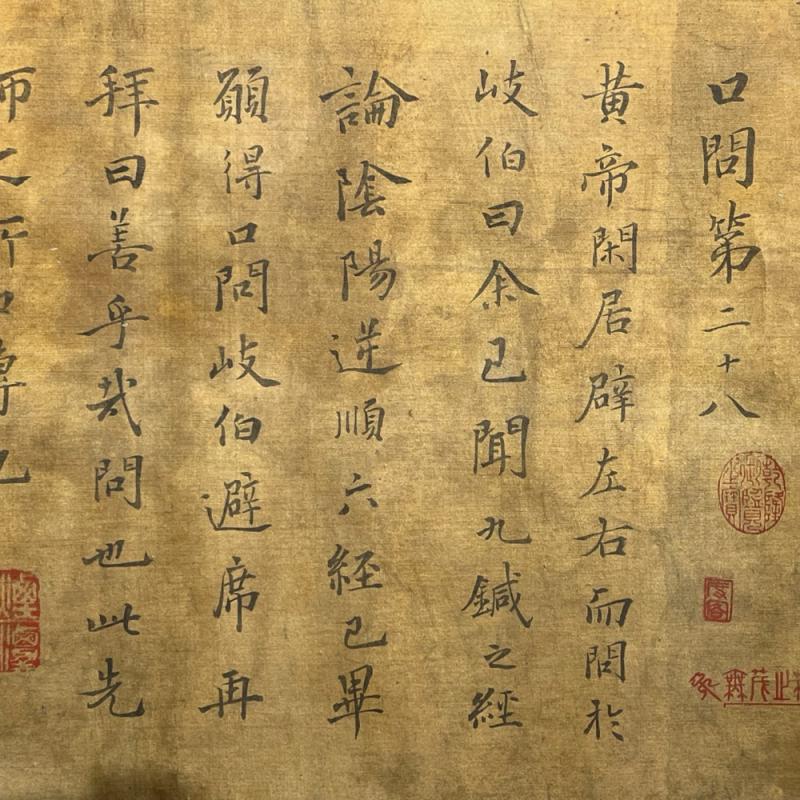 口問第二十八
乾隆御覽之寶
黄帝閑居辟左右而問於
岐伯曰余已聞九鍼之經
論陰陽逆順六経已畢
願得口問岐伯避席再
拜曰善乎哉問也此先
師之所口傳也